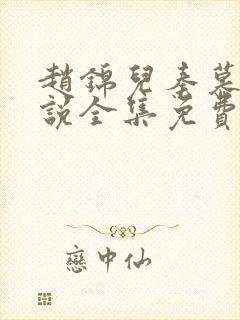 趙錦兒秦慕
說全集免費
戀中仙